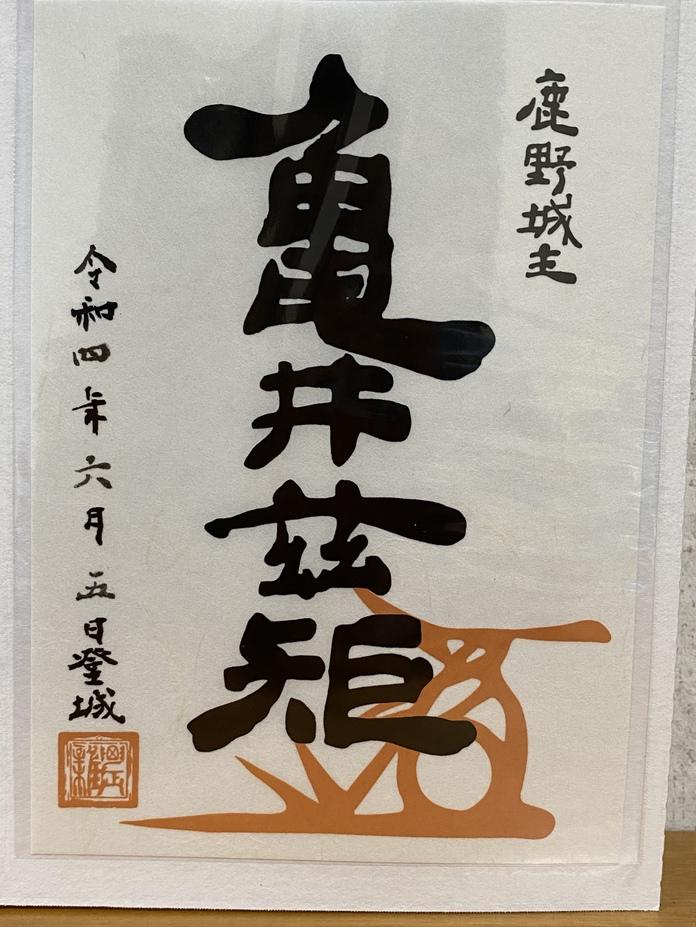 鹿野城主
亀井茲矩
令和四年六月五日登城